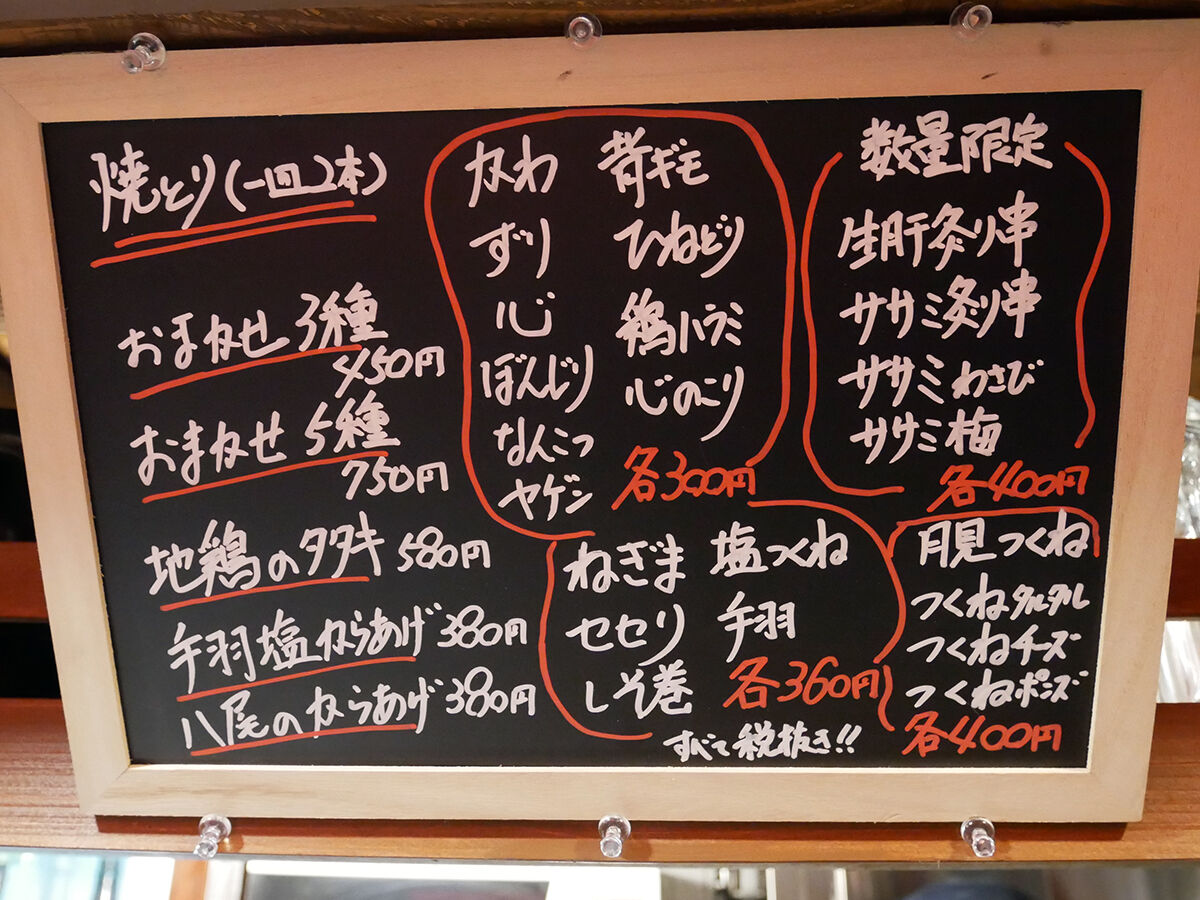 焼とり(一皿2本)
おまかせ3種
450円
おまかせ5種
750円
地鶏のタタキ 580円
手羽塩からあげ 380円
八尾のからあげ 380円
かわ
ずり
心
ぼんじり
なんこつ
ヤゲン
背ギモ
ひねどり
鶏ハラミ
心のこり
各300円
数量限定
生肝炙り串
ササミ炙り串
ササミわさび
ササミ梅
各400円
ねぎま
セセリ
しそ巻
塩つくね
手羽
各360円
月見つくね
つくねタルタル
つくねチーズ
つくねポンズ
各400円
すべて税抜き!!